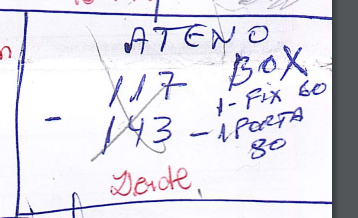 ATENO
117 BOX
1-FIX 60
- 143 - 1 PORTA
80